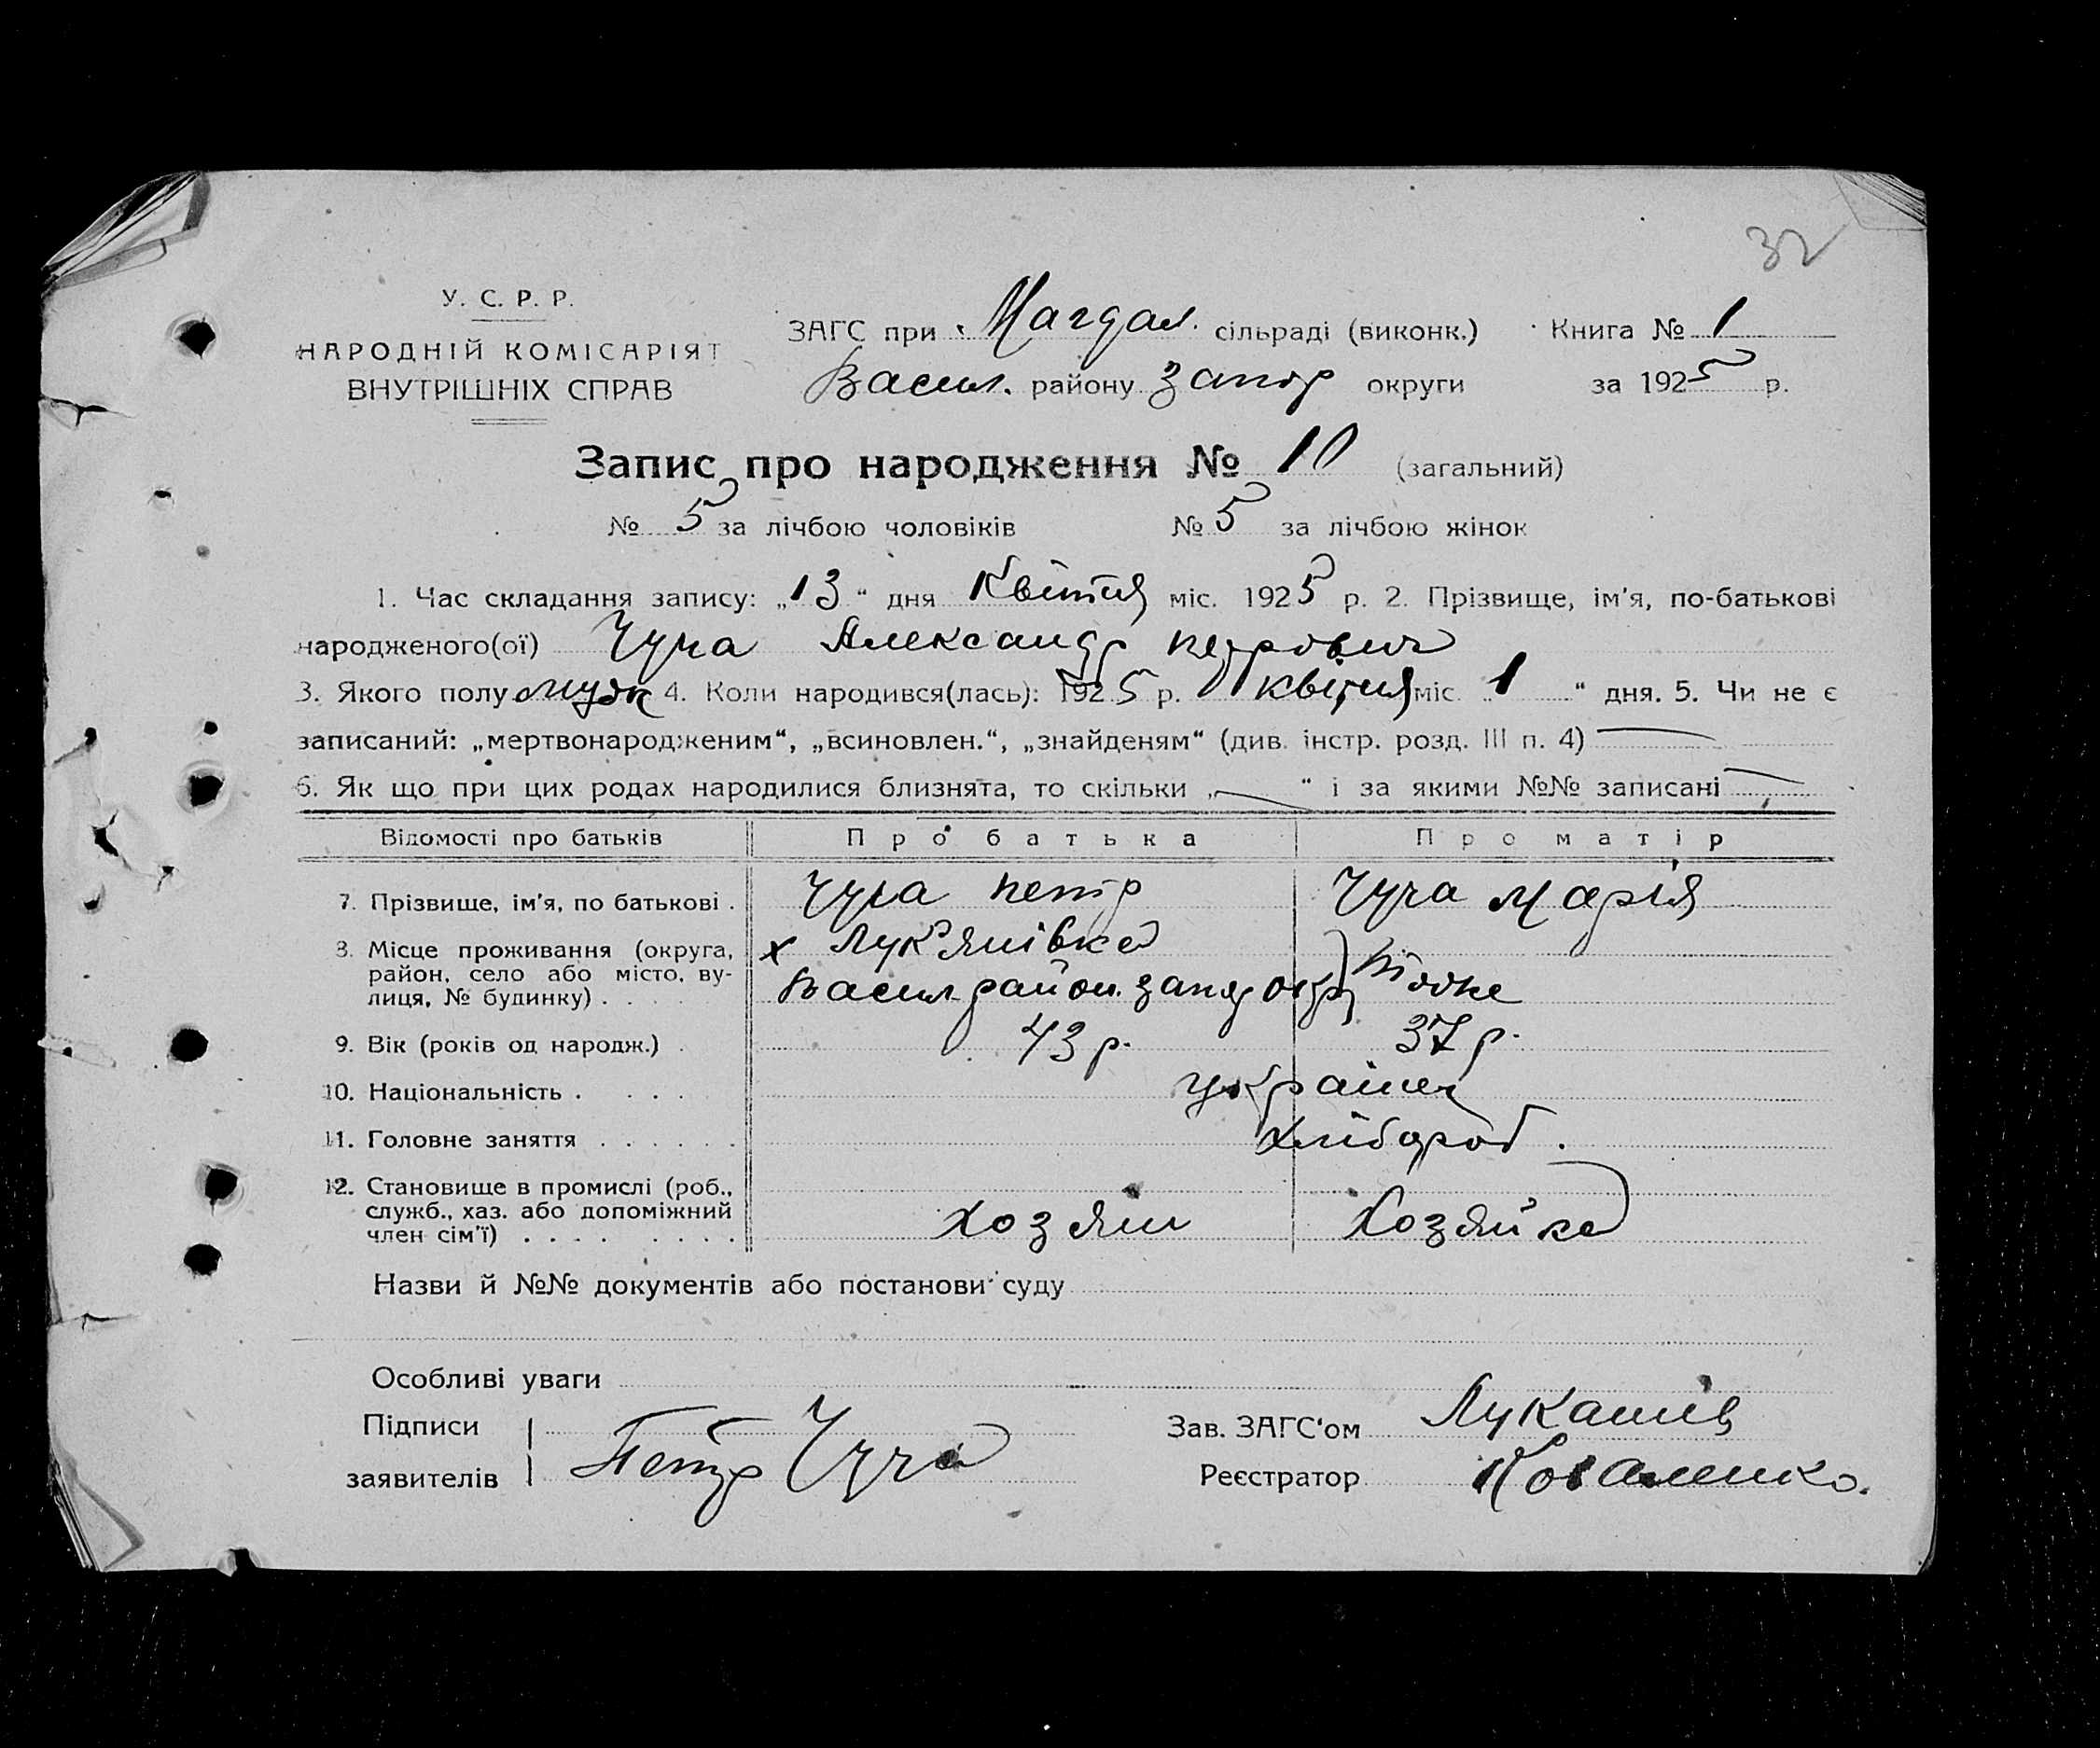 32
У. С. Р. Р.
НАРОДНІЙ КОМІСАРІЯТ
ВНУТРІШНІХ СПРАВ
ЗАГС при Магдал. сільраді (виконк.) Книга № 1
Васил. району Запор округи за 1925 р.
Запис про народження № 10 (загальний)
№ 5 за лічбою чоловіків № 5 за лічбою жінок
1. Час складання запису: „13“ дня Квітня міс. 1925 р. 2. Прізвище, ім'я, по-батькові
народженого(ої) Чуча Александр Петрович
3. Якого полу муж 4. Коли народився(лась): 1925 р. квітня міс. 1 “ дня. 5. Чи не є
записаний: „мертвонародженим“, „всиновлен.“, „знайденям“ (див. інстр. розд. III п. 4)
6. Як що при цих родах народилися близнята, то скільки „ “ і за якими №№ записані
Відомості про батьків Про батька Про матір
7. Прізвище, ім'я, по батькові . Чуча Петр Чуча Марія
8. Місце проживання (округа, район, село або місто, вулиця, № будинку) . . . . х Лук'янівка
Васил район. Запор окр
9. Вік (років од народж.) . 43 р. 37 р.
10. Національність . . . . украінец
11. Головне заняття . . . . . . хлібороб.
12. Становище в промислі (роб., служб., хаз. або допоміжний член сім'ї) . . . . . . . . хозяин Хозяйка
Назви й №№ документів або постанови суду
Особливі уваги
Підписи
заявителів Петр Чуча
Зав. ЗАГС'ом
Реєстратор Коваленко.